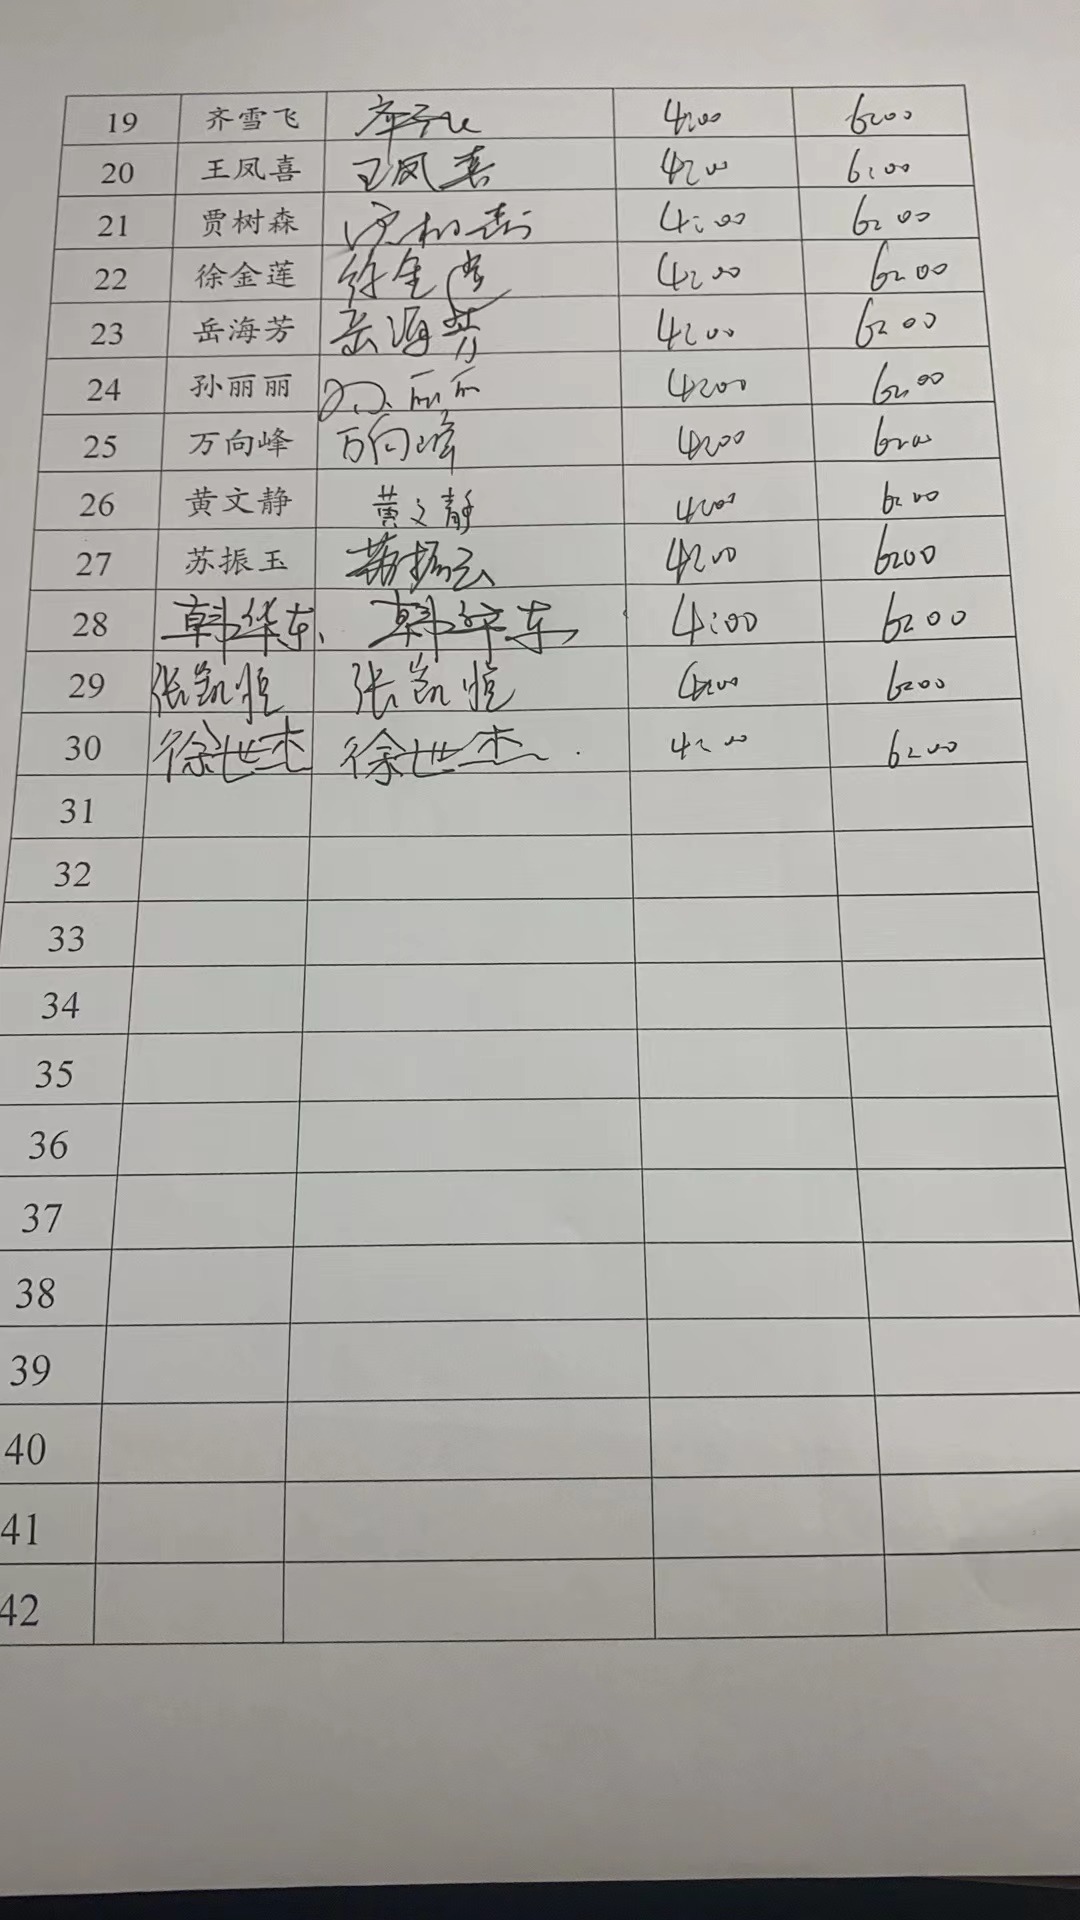 19 齐雪飞 齐雪飞 4200 6200
20 王凤喜 王凤喜 4200 6:00
21 贾树森 贾树森 4:00 6200
22 徐金莲 徐金莲 4200 6200
23 岳海芳 岳海芳 4200 6200
24 孙丽丽 孙丽丽 4200 6200
25 万向峰 万向峰 4200 6200
26 黄文静 黄文静 4200 6200
27 苏振玉 苏振玉 4200 6200
28 韩华东 韩华东 4:00 6200
29 张凯恒 张凯恒 4200 6200
30 徐世杰 徐世杰 4200 6200
31
32
33
34
35
36
37
38
39
40
41
42